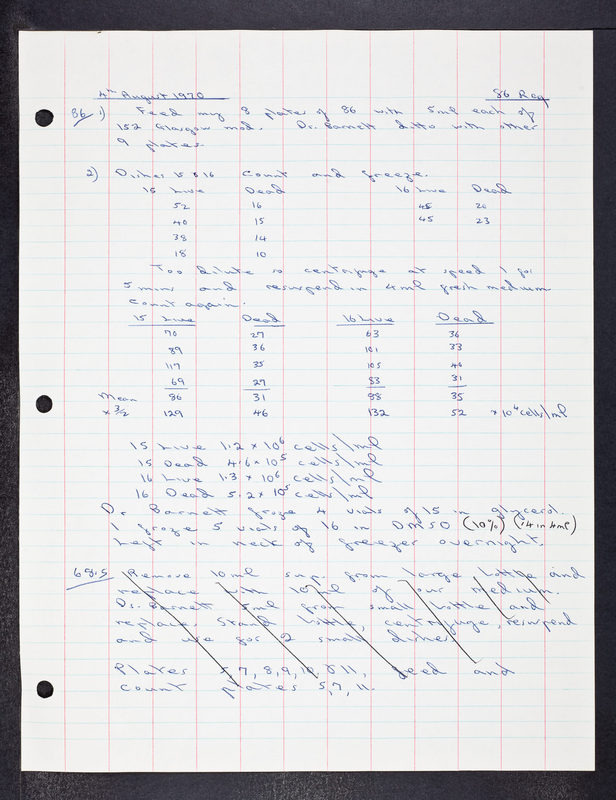 4th August 1970 86 Req
86 1) Feed my 8 plates of 86 with 5ml each of
152 Glasgow mod. Dr. Barnett ditto with other
9 plates.
2) Dishes 15 & 16 Count and freeze.
15 Live Dead 16 Live Dead
52 16 45 20
40 15 45 23
38 14
18 10
Too dilute so centrifuge at speed 1 for
5 mins and resuspend in 4ml fresh medium
Count again.
15 Live Dead 16 Live Dead
70 27 63 36
89 36 101 33
117 35 105 40
69 27 83 31
Mean 86 31 88 35
× 3/2 129 46 132 52 × 10⁴ cells/ml
15 Live 1.2 × 10⁶ cells/ml
15 Dead 4.6 × 10⁵ cells/ml
16 Live 1.3 × 10⁶ cells/ml
16 Dead 5.2 × 10⁵ cells/ml
Dr Barnett froze 4 vials of 15 in glycerol.
I froze 5 vials of 16 in DMSO (10%) (.4 in 4ml)
Left in neck of freezer overnight.
Remove 10ml sup. from large bottle and
replace with 10ml of our medium.
Dr. Barnett 5ml from small bottle and
replace. Stand bottle, centrifuge, resuspend
and use for 2 small dishes
Plates 5,7,8,9,10, & 11, feed and
count plates 5,7,11.